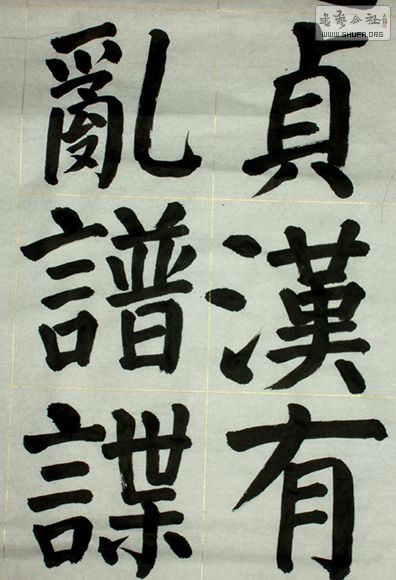 貞漢有
亂譜諜
書藝公社
WWW.SHUFA.ORG